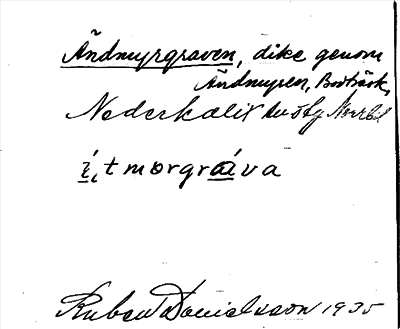 Ändmyrgraven, dike genom
Ändmyren, Bodträsk,
Nederkalix tvsbg Norrb.
í̱ˌtmorgrα̱í̱va
Ruben Danielsson 1935